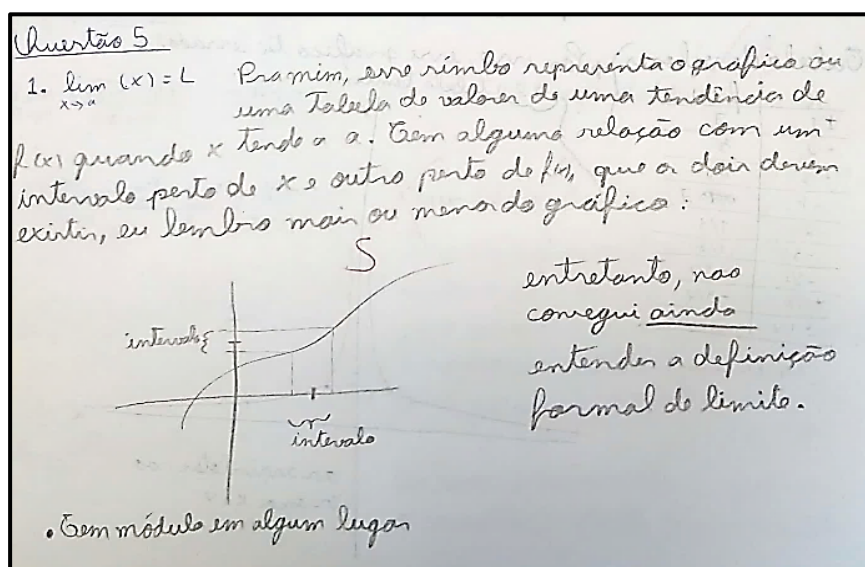 Questão 5
1. lim (x) = L Pra mim, esse símbo representa o gráfico ou
x→a
uma Tabela de valores de uma tendência de
f(x) quando x tende a a. Tem alguma relação com um
intervalo perto de x e outro perto de f(x), que os dois devem
existir, eu lembro mais ou menos do gráfico:
S
entretanto, nao
consegui ainda
entender a definição
formal de limite.
intervalo {
intervalo
• Tem módulo em algum lugar